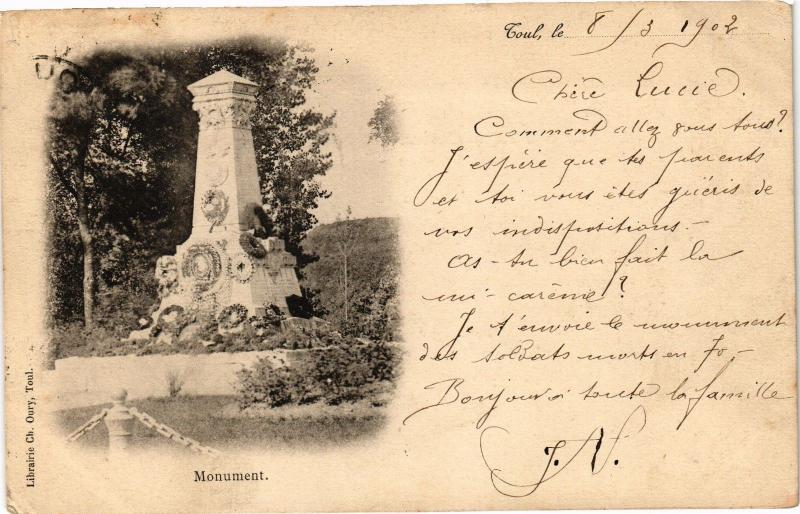 Toul, le 8/3 1902
Chère Lucie.
Comment allez vous tous?
J'espère que tes parents
et toi vous êtes guéris de
vos indispositions. -
As-tu bien fait la
mi-carême?
Je t'envoie le monument
des soldats morts en 70 -
Bonjour à toute la famille
J.N.
Monument.
Librairie Ch. Oury, Toul.